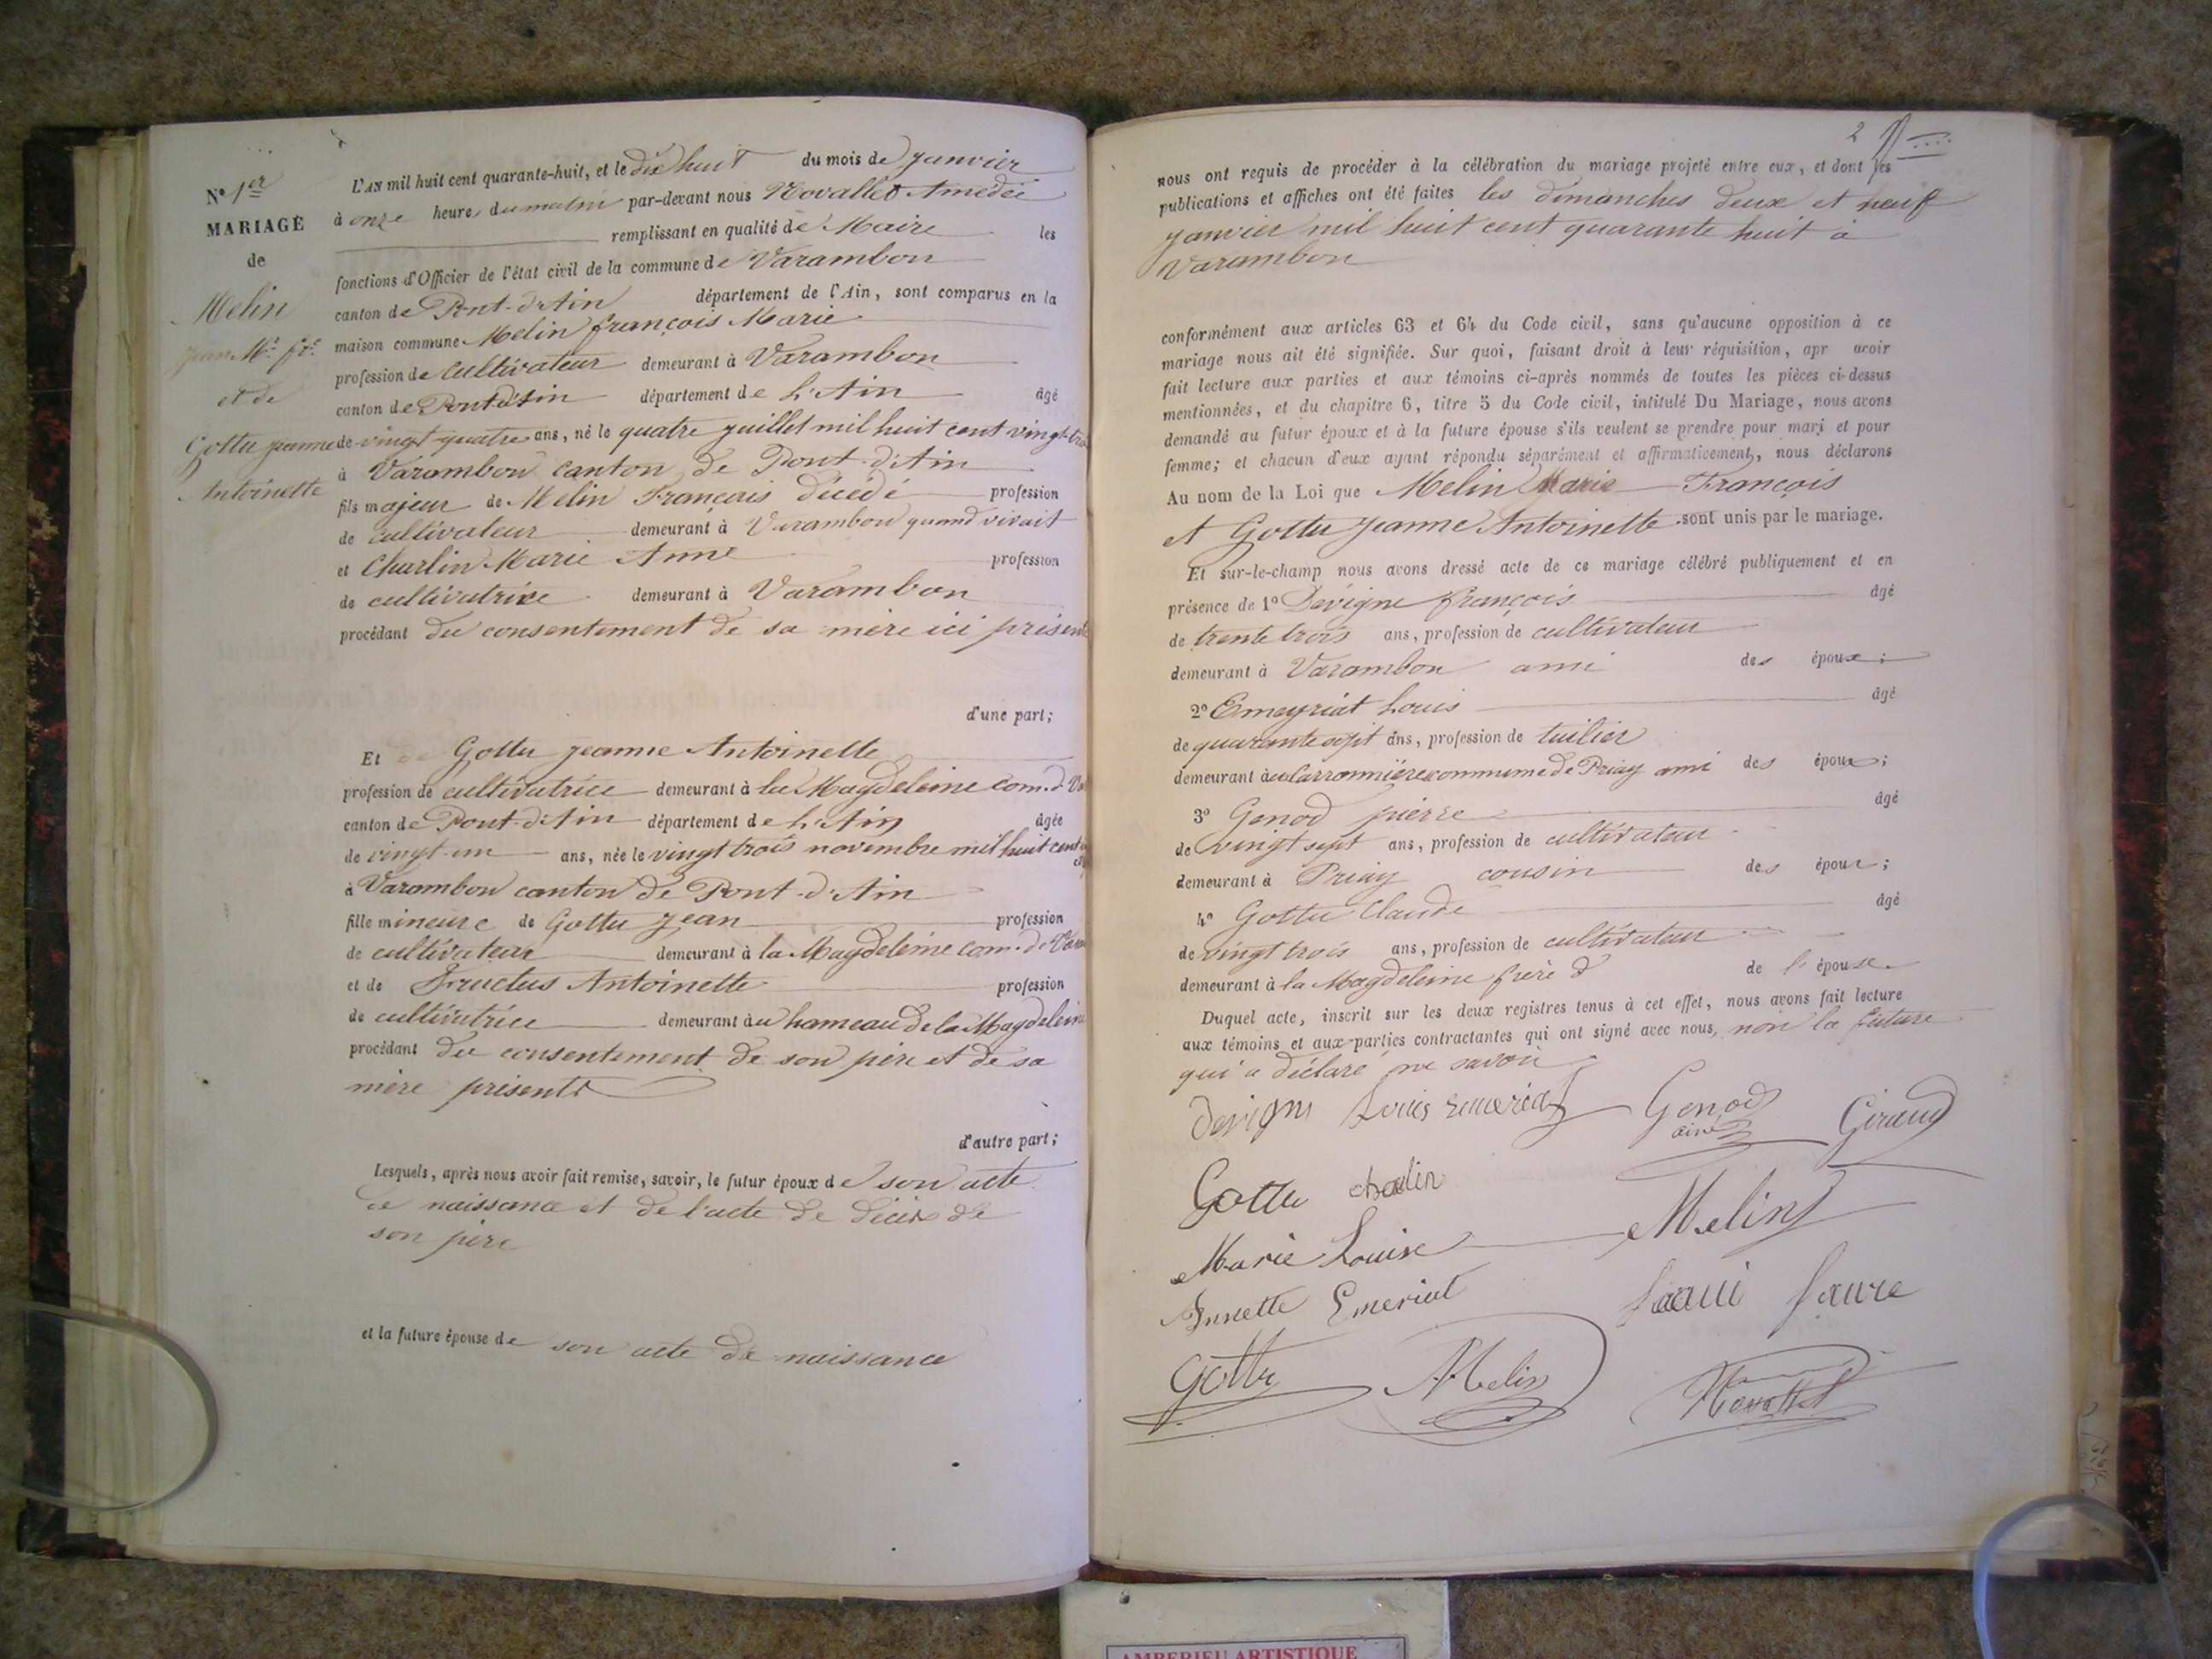 N° 1er
MARIAGE
de
Melin
Jean Mie fçs
et de
Gottu jeanne
Antoinette
L'AN mil huit cent quarante-huit, et le dix huit du mois de janvier
à onze heures du matin par-devant nous Novallet Amédée
remplissant en qualité de Maire les
fonctions d'Officier de l'état civil de la commune de Varambon
canton de Pont-d'Ain département de l'Ain, sont comparus en la
maison commune Melin françois Marie
profession de cultivateur demeurant à Varambon
canton de Pont d'Ain département de L'Ain âgé
de vingt quatre ans, né le quatre juillet mil huit cent vingt-tro
à Varambon canton de Pont-d'Ain
fils majeur de Melin François décédé profession
de cultivateur demeurant à Varambon quand vivait
et Charlin Marie Anne profession
de cultivatrice demeurant à Varambon
procédant du consentement de sa mère ici présente
d'une part;
Et Gottu jeanne Antoinette
profession de cultivatrice demeurant à la Magdeleine com. d Va
canton de Pont-d'Ain département de L'Ain âgée
de vingt-un ans, née le vingt trois novembre mil huit cent
à Varambon canton de Pont-d'Ain
fille mineure de Gottu jean profession
de cultivateur demeurant à la Magdeleine com. de Vara
et de Fructus Antoinette profession
de cultivatrice demeurant au hameau de la Magdeleine
procédant du consentement de son père et de sa
mère présents
d'autre part;
Lesquels, après nous avoir fait remise, savoir, le futur époux de son acte
de naissance et de l'acte de décès de
son père
et la future épouse de son acte de naissance
2
nous ont requis de procéder à la célébration du mariage projeté entre eux, et dont les
publications et affiches ont été faites les dimanches deux et neuf
janvier mil huit cent quarante huit à
Varambon
conformément aux articles 63 et 64 du Code civil, sans qu'aucune opposition à ce
mariage nous ait été signifiée. Sur quoi, faisant droit à leur réquisition, apr avoir
fait lecture aux parties et aux témoins ci-après nommés de toutes les pièces ci-dessus
mentionnées, et du chapitre 6, titre 5 du Code civil, intitulé Du Mariage, nous avons
demandé au futur époux et à la future épouse s'ils veulent se prendre pour mari et pour
femme; et chacun d'eux ayant répondu séparément et affirmativement, nous déclarons
Au nom de la Loi que Melin Marie François
et Gottu jeanne Antoinette sont unis par le mariage.
Et sur-le-champ nous avons dressé acte de ce mariage célébré publiquement et en
présence de 1° Dévigne françois âgé
de trente trois ans, profession de cultivateur
demeurant à Varambon ami des époux;
2° Emeyriat Louis âgé
de quarante sept ans, profession de tuilier
demeurant à la Carronnière commune de Priay ami des époux;
3° Genod pierre âgé
de vingt sept ans, profession de cultivateur
demeurant à Priay cousin des époux;
4° Gottu Claude âgé
de vingt trois ans, profession de cultivateur
demeurant à la Magdeleine frère d de l'épouse
Duquel acte, inscrit sur les deux registres tenus à cet effet, nous avons fait lecture
aux témoins et aux parties contractantes qui ont signé avec nous, non la future
qui a déclaré ne savoir
devigne Louis emeriat Genod Giraud
ainé
Gottu charlin
Marie Louise Melin
Annette Emeriat faure
Gottu Melin Novallet
AMBERIEU ARTISTIQUE